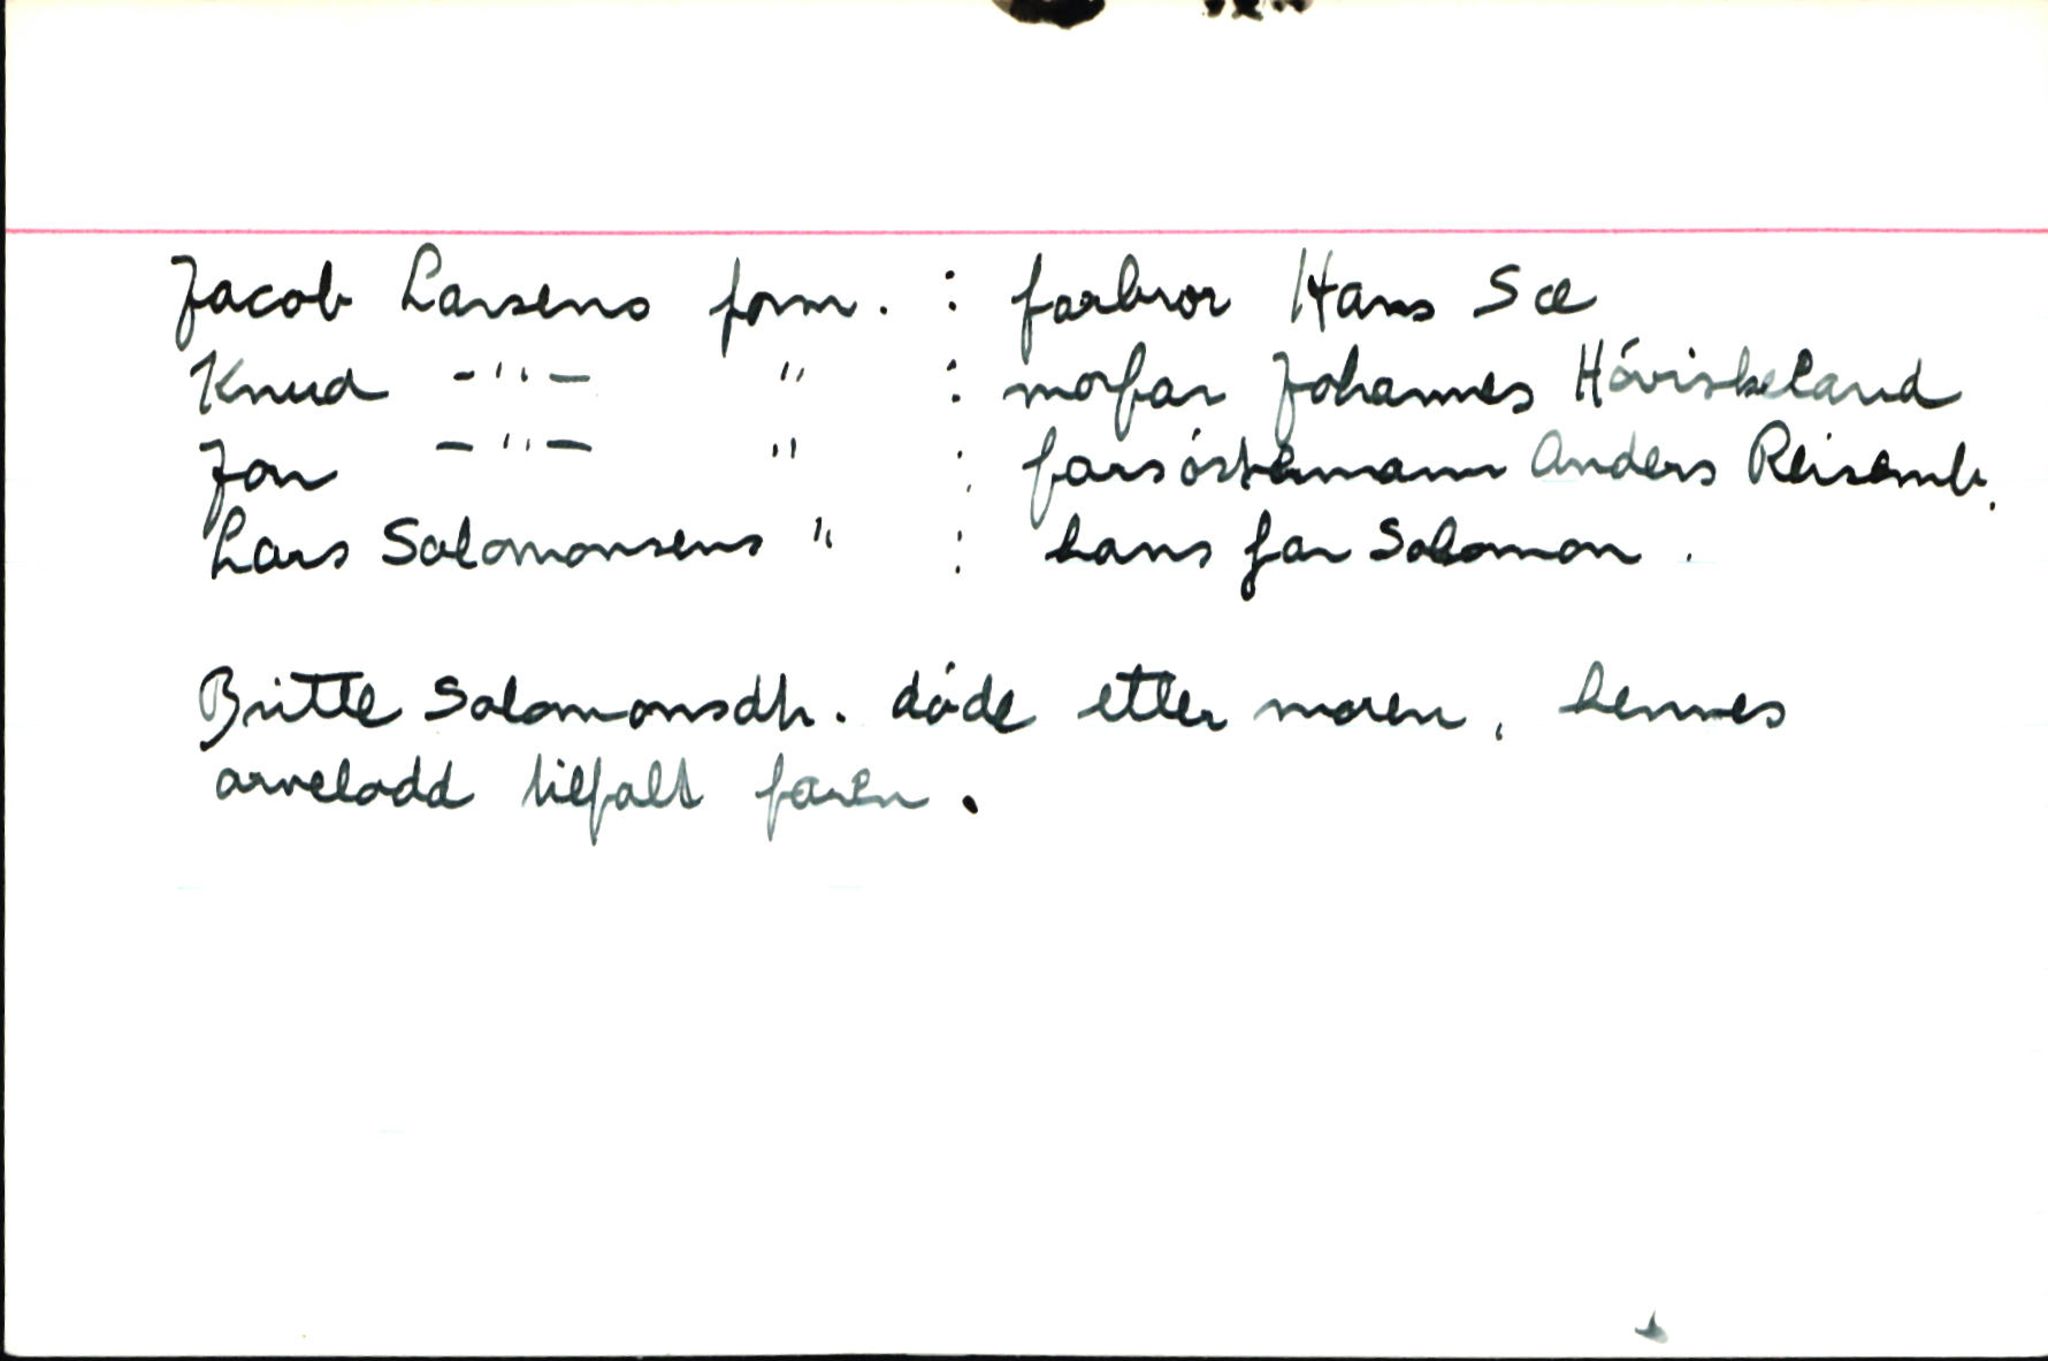 Jacob Larsens form. : farbror Hans Sæ
Knud -"- " : morfar Johannes Hóviskeland
Jon -"- " : farsóstermann Anders Reisemb.
Lars Solomonsens " : hans far Solomon.
Britte Solomonsdtr. dóde etter moren, hennes
arvelodd tilfalt faren.